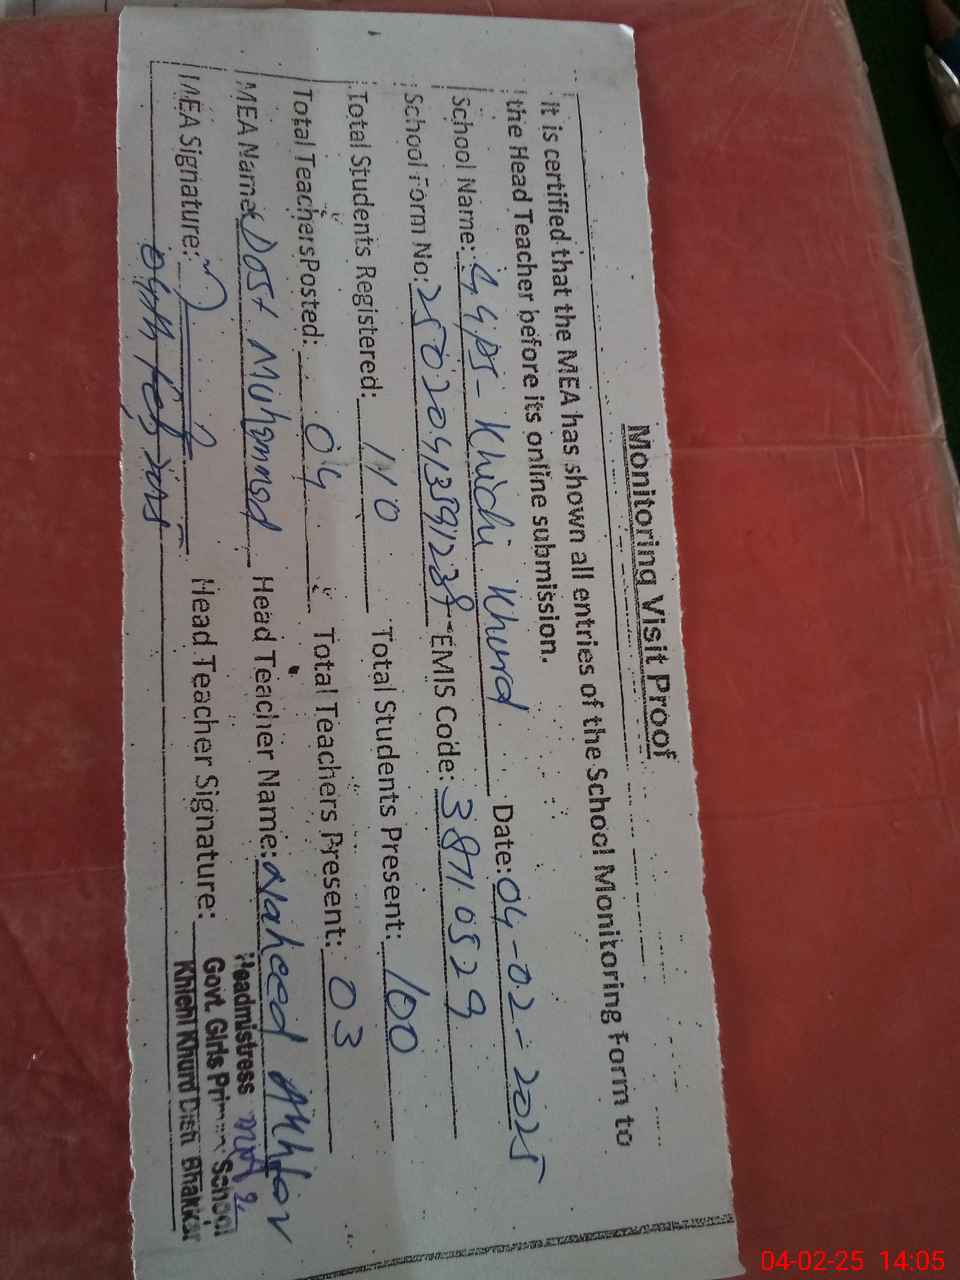 Monitoring Visit Proof
It is certified that the MEA has shown all entries of the School Monitoring Form to
the Head Teacher before its online submission.
School Name: GGPS- Khichi Khurd Date: 04-02-2025
School Form No: EMIS Code: 38710529
Total Students Registered: 110 Total Students Present: 100
Total Teachers Posted: 04 Total Teachers Present: 03
MEA Name: Dost Muhammad Head Teacher Name: Naheed Akhtar
MEA Signature: Head Teacher Signature:
Headmistress
Govt. Girls Primary School
Khichi Khurd Distt. Bhakkar
04-02-25 14:05